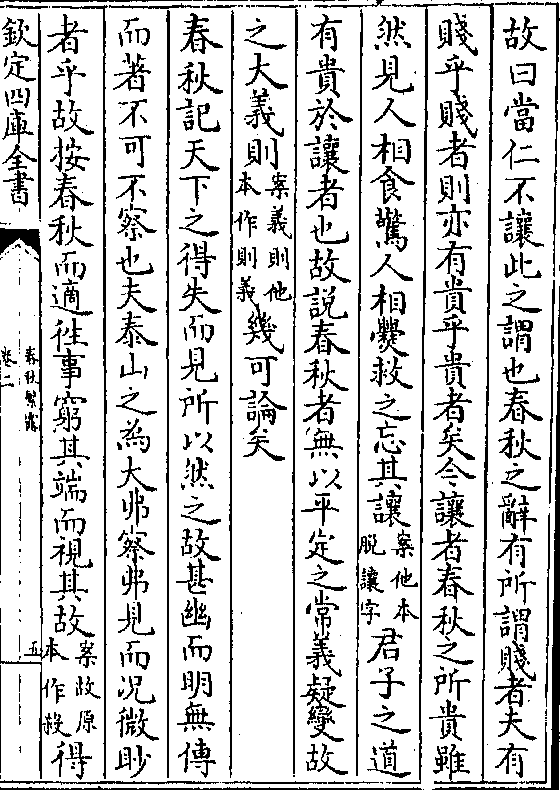 故曰當仁不讓此之謂也春秋之辭有所謂賤者夫有
賤乎賤者則亦有貴乎貴者矣今讓者春秋之所貴雖
然見人相食驚人相爨救之忘其讓案他本脫讓字君子之道
有貴於讓者也故說春秋者無以平定之常義疑變故
之大義則案義則他本作則義幾可論矣
春秋記天下之得失而見所以然之故甚幽而明無傳
而著不可不察也夫泰山之為大弗察弗見而况微眇
者乎故按春秋而適往事窮其端而視其故案故原本作殺得
欽定四庫全書
春秋繁露
卷二
五